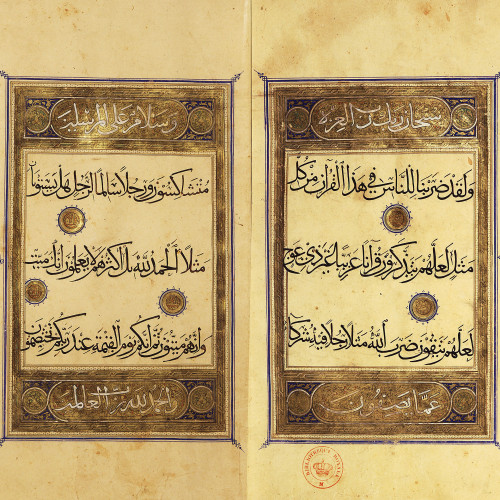 سبحان ربك رب العزة
ولقد ضربنا للناس في هذا القرآن من كل
مثل لعلهم يتذكرون قرآنا عربيا غير ذي عوج
لعلهم يتقون ضرب الله مثلا رجلا فيه شركاء
عما يصفون
وسلام على المرسلين
متشاكسون ورجلا سالما لرجل هل يستويان
مثلا الحمد لله بل أكثرهم لا يعلمون إنك ميت
وإنهم ميتون ثم إنكم يوم القيمة عند ربكم تختصمون
والحمد لله رب العالمين
BIBLIOTHEQUE ROYALE